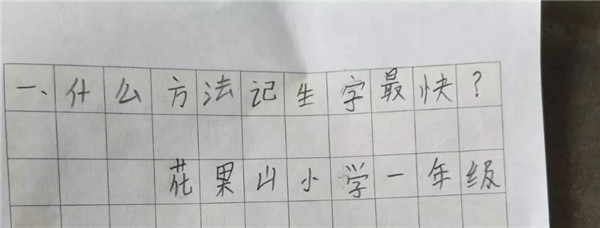 一、什么方法记生字最快?
花果山小学一年级